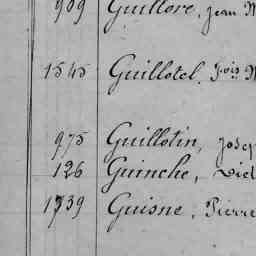 939 Guillore, Jean
1545 Guillotel, Fois
975 Guillotin, Josep
126 Guinche, Vict
1739 Guisne, Pierre